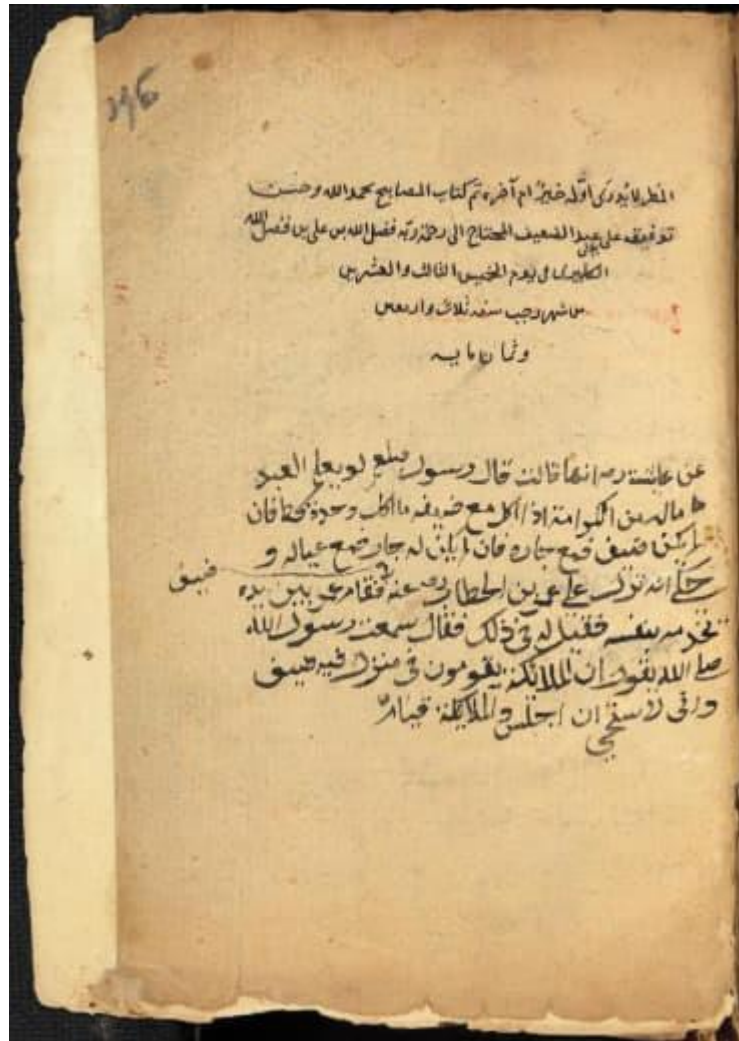 المطر لا يدرى اوّله خيرٌ ام آخره تم كتاب المصابيح بحمد الله وحسن
توفيقه على يدى عبد الضعيف المحتاج الى رحمة ربّه فضل الله بن على بن فضل الله
فى يوم الخميس الثالث والعشرين
من شهر رجب سنه ثلاث واربعين
وثمان مايه
عن عايشة رضـ انها قالت قال رسول صلعم لو يعلم العبد
ما له من الكرامة اذا اكل مع ضيفه ما اكل وحده فان
لم يكن ضيف فمع جاره فان لم يكن له جار فمع عياله و
حكى انه نزل على عمر بن الخطاب رضـ عنه ضيف فقام عمر بين يديه
يخدمه بنفسه فقيل له فى ذلك فقال سمعت رسول الله
صلى الله يقول ان الملائكة يقومون فى منزل فيه ضيف
وانى لاستحى ان اجلس والملائكة قيامٌ